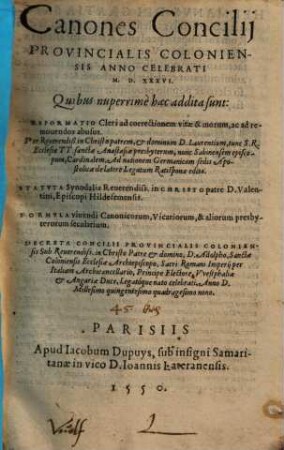 Canones Concilij
PROVINCIALIS COLONIEN-
SIS ANNO CELEBRATI
M. D. XXXVI.
Quibus nuperrimè hæc addita sunt:
REFORMATIO Cleri ad correctionem vitæ & morum, ac ad re-
mouendos abusus.
Per Reuerendiss. in Christo patrem, & dominum D. Laurentium, tunc S. R.
Ecclesiæ TT. sanctæ Anastasiæ presbyterum, nunc Sabinensem episco-
pum, Cardinalem, Ad nationem Germanicam sedis Apo-
stolicæ de latere Legatum Ratisponæ edita.
STATVTA Synodalia Reuerendiss. in CHRISTO patre D. Valen-
tini, Episcopi Hildesemensis.
FORMVLA viuendi Canonicorum, Vicariorum, & aliorum presby-
terorum secularium.
DECRETA CONCILII PROVINCIALIS COLONIEN-
sis Sub Reuerendiss. in Christo Patre & domino, D. Adolpho, Sanctæ
Coloniensis Ecclesiæ Archiepiscopo, Sacri Romani Imperij per
Italiam Archicancellario, Principe Electore, Vuestphaliæ
& Angariæ Duce, Legatóque nato celebrati, Anno D.
Millesimo quingentesimo quadragesimo nono.
PARISIIS
Apud Iacobum Dupuys, sub insigni Samari-
tanæ in vico D. Ioannis Lateranensis.
1550.